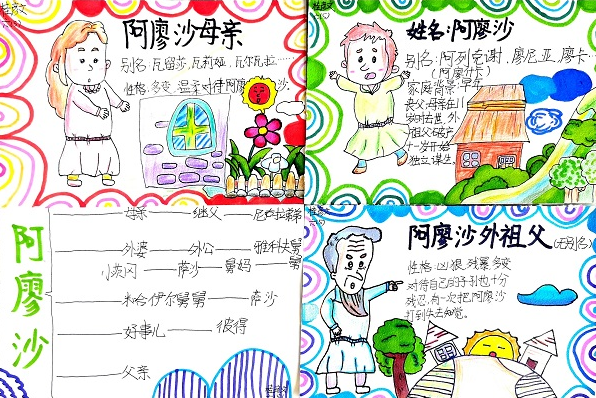 阿廖沙母亲
别名:瓦留莎,瓦莉娅,瓦尔瓦拉……
性格:多变,温柔对待阿廖沙
姓名:阿廖沙
别名:阿列克谢,廖尼亚,廖卡
家庭背景:早年
丧父母亲在儿
时去世,外
祖父破产
十一岁开始
独立谋生。
阿廖沙
母亲——继父——
外婆——外公——雅科夫舅舅
萨沙——舅妈
米哈伊尔舅舅——萨沙
好事儿——彼得
父亲
阿廖沙外祖父(无别名)
性格:凶狠,残暴,多变
对待自己的子孙也十分
残忍,有一次把阿廖沙
打到失去知觉。